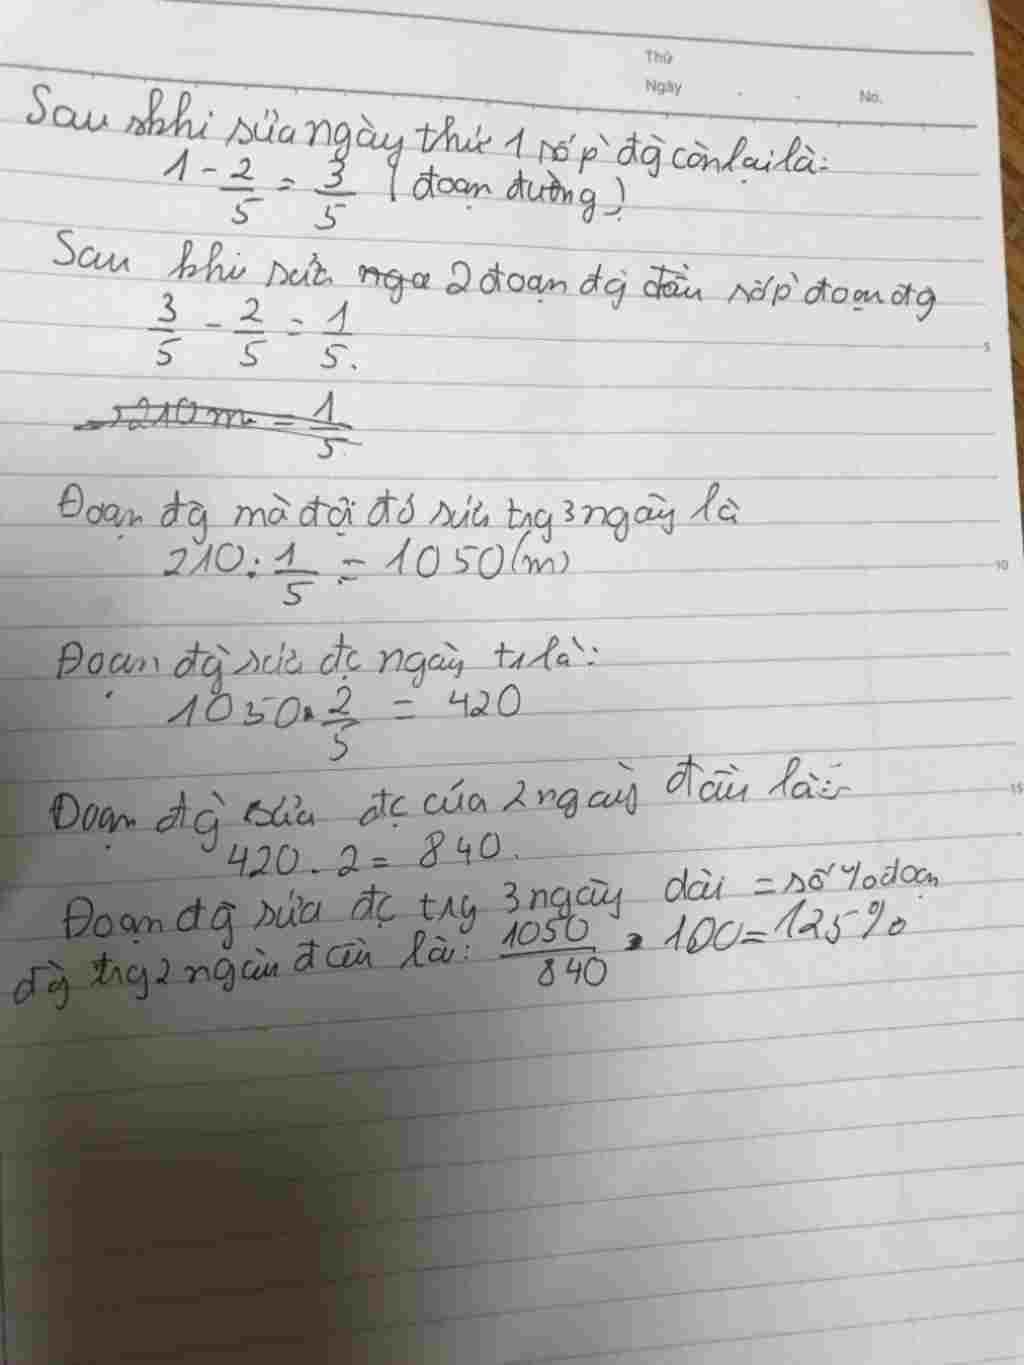 Thứ
Ngày . - No.
Sau khi sửa ngày thứ 1 số p' đg còn lại là:
1 - 2/5 = 3/5 (đoạn đường)
Sau khi sửa 2 đoạn đg đầu số p' đoạn đg
3/5 - 2/5 = 1/5.
210m = 1/5
5
Đoạn đg mà đội đó sửa trg 3 ngày là
210 : 1/5 = 1050(m)
10
Đoạn đg sửa đc ngày t1 là:
1050 . 2/5 = 420
Đoạn đg sửa đc của 2 ngày đầu là:
15
420 . 2 = 840.
Đoạn đg sửa đc trg 3 ngày dài = số % đoạn
đg trg 2 ngày đầu là: 1050/840 . 100 = 125%